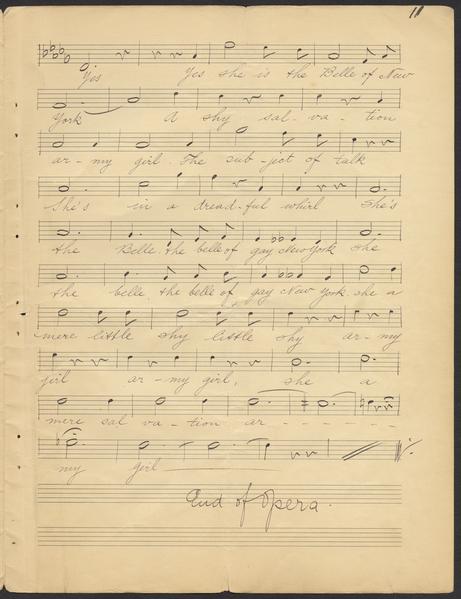 11
Yes Yes she is the Belle of New
York A shy sal - va - tion
ar - my girl. The sub - ject of talk
She's in a dread - ful whirl She's
the Belle, the belle of gay New York she
the belle the belle of gay New York she a
mere little shy little shy ar - my
girl ar - my girl, she a
mere sal va - tion ar - - - - - -
my girl
End of Opera.